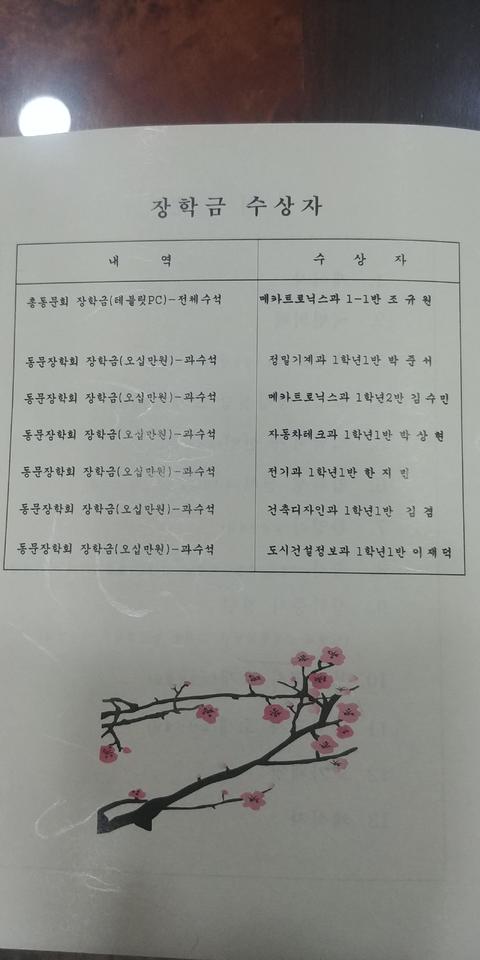 장학금 수상자
내 역 수 상 자
총동문회 장학금(테블릿PC)-전체수석 메카트로닉스과 1-1반 조 규 원
동문장학회 장학금(오십만원)-과수석 정밀기계과 1학년1반 박 준 서
동문장학회 장학금(오십만원)-과수석 메카트로닉스과 1학년2반 김 수 민
동문장학회 장학금(오십만원)-과수석 자동차테크과 1학년1반 박 상 현
동문장학회 장학금(오십만원)-과수석 전기과 1학년1반 한 지 민
동문장학회 장학금(오십만원)-과수석 건축디자인과 1학년1반 김 겸
동문장학회 장학금(오십만원)-과수석 도시건설정보과 1학년1반 이 재 덕